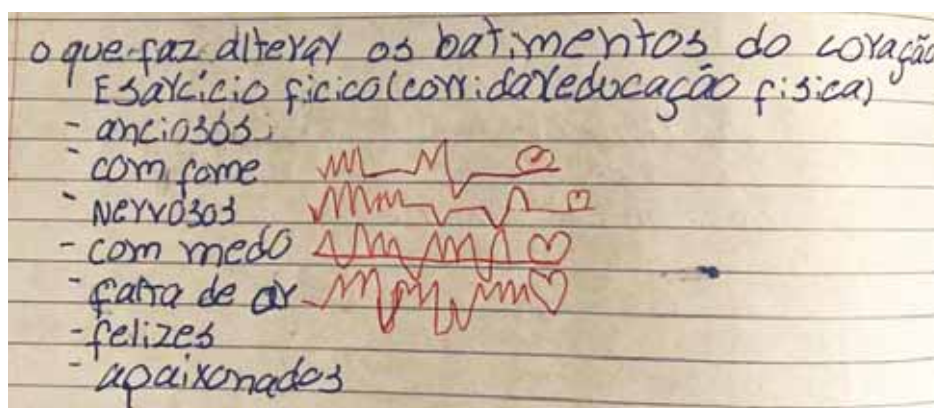 o que faz alterar os batimentos do coração
Esarcício ficico (corrida e educação fisica)
- anciosos
- com fome
- Nervosos
- com medo
- falta de ar
- felizes
- apaixonados